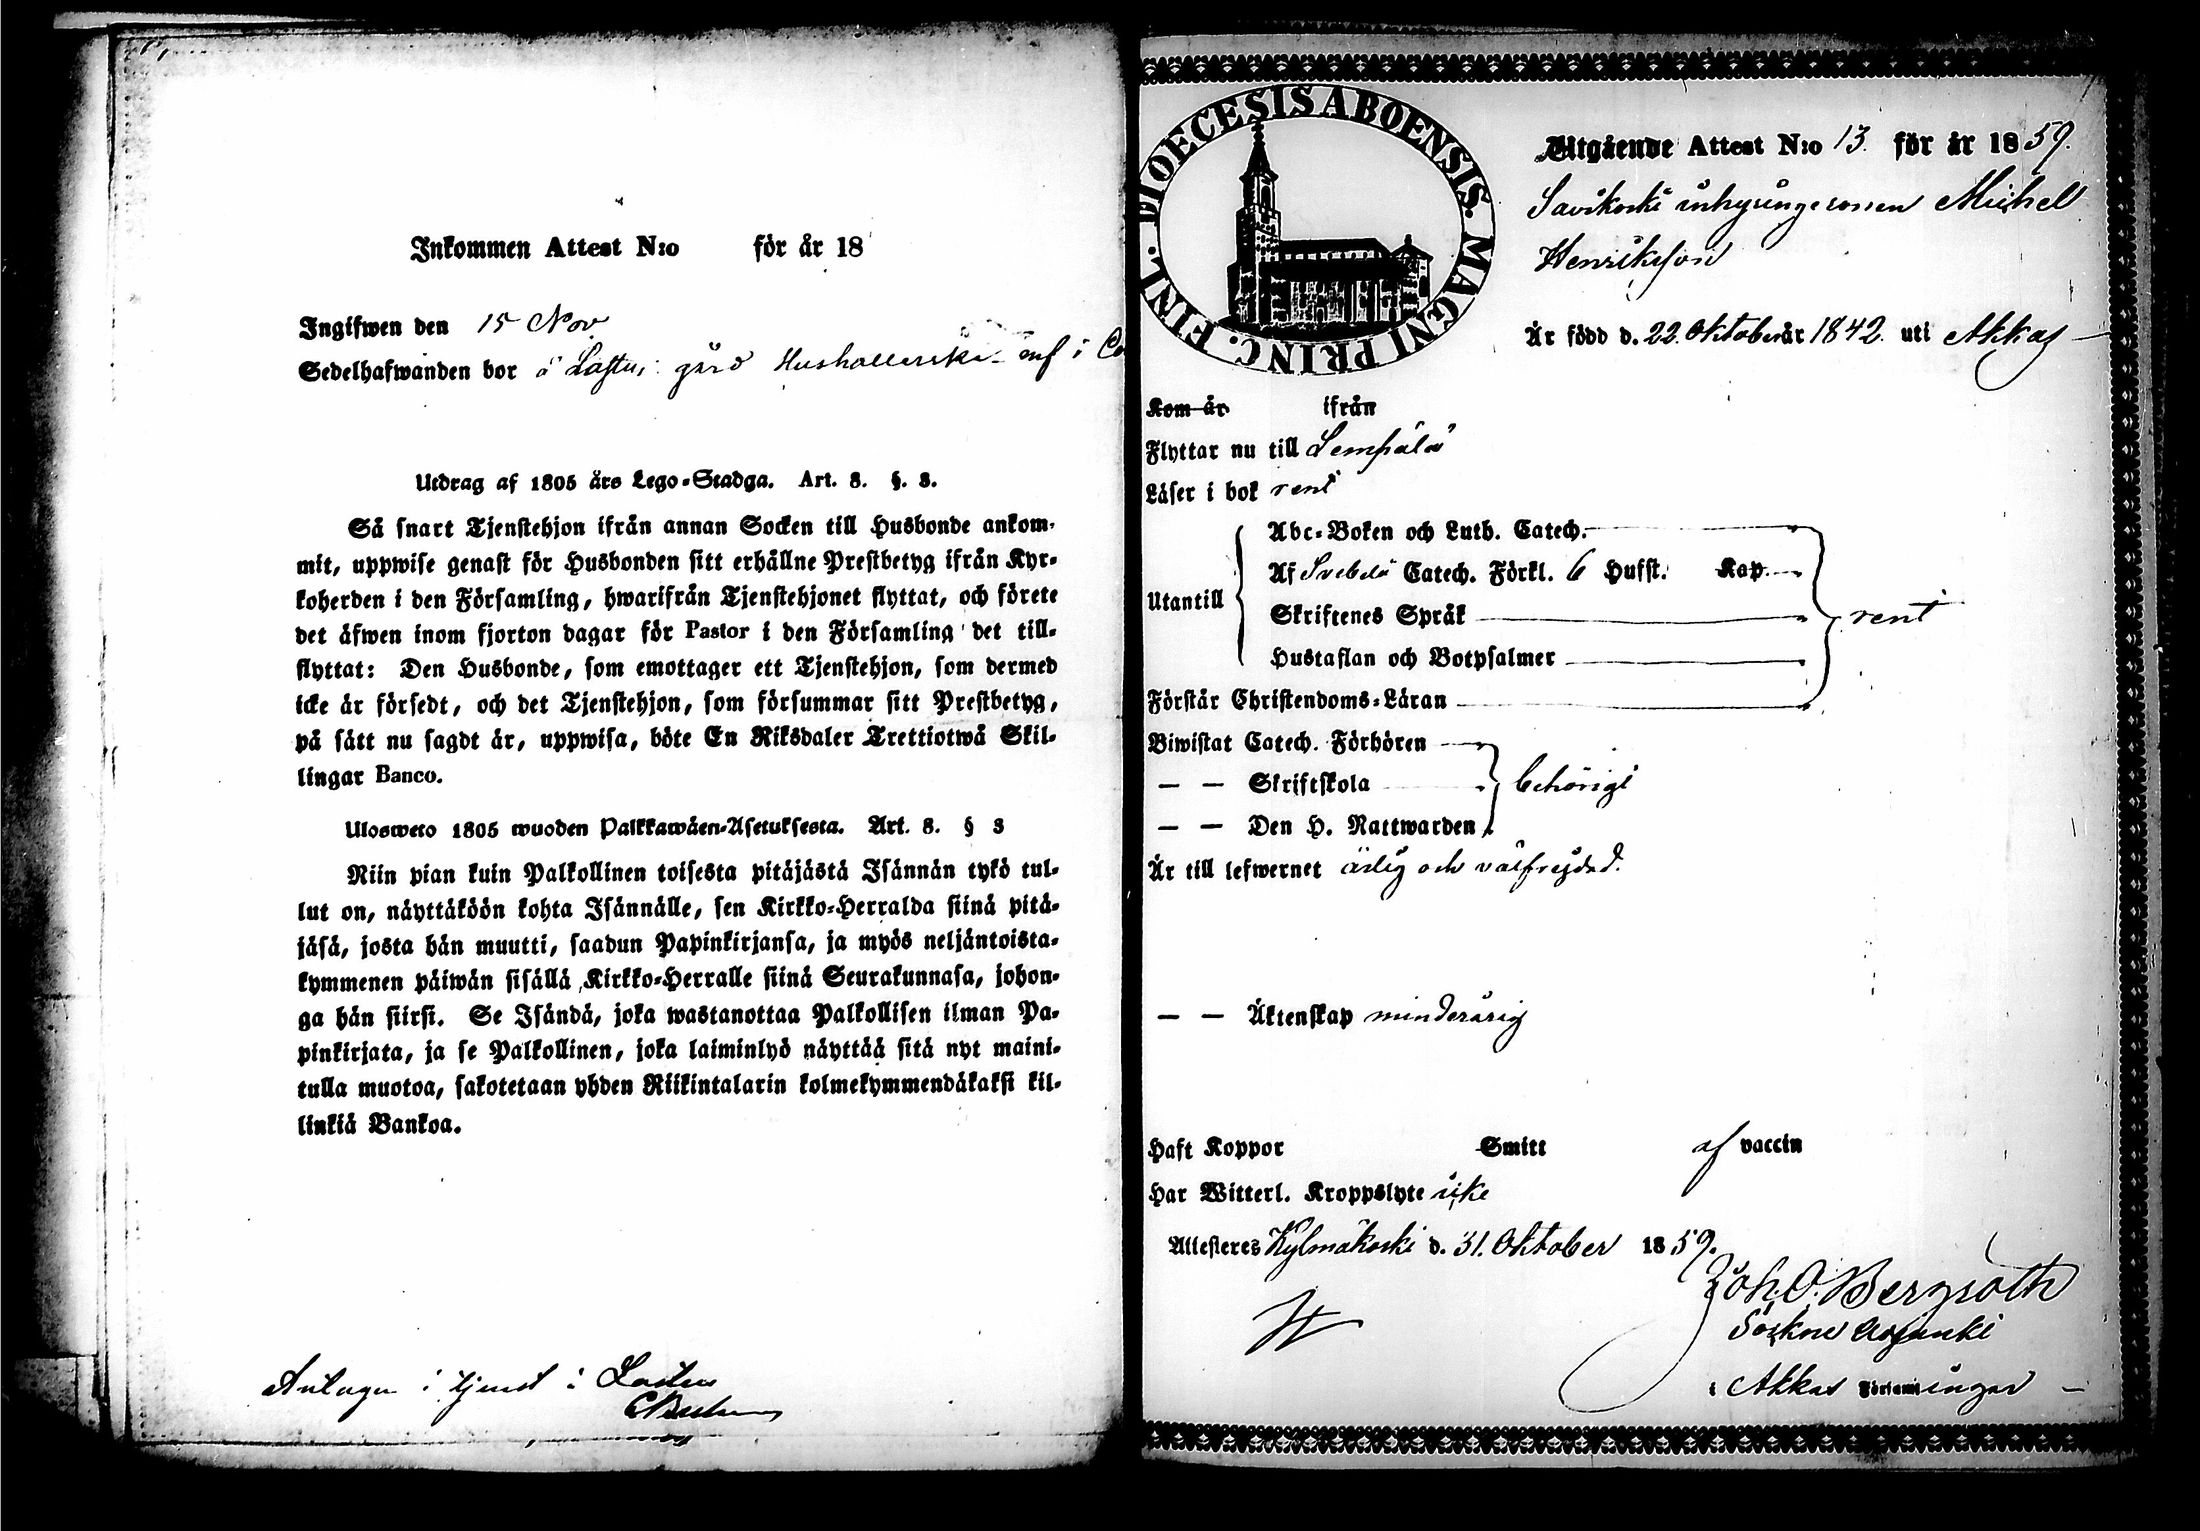 Inkommen Attest N:o för år 18
Ingifwen den 15 Nov
Sedelhafwanden bor å Lastu gård
Utdrag af 1805 års Lego-Stadga. Art. 8. §. 3.
Så snart Tjenstehjon ifrån annan Socken till Husbonde ankom-
mit, uppwise genast för Husbonden sitt erhållne Prestbetyg ifrån Kyr-
koherden i den Församling, hwarifrån Tjenstehjonet flyttat, och förete
det äfwen inom fjorton dagar för Pastor i den Församling det till-
flyttat: Den Husbonde, som emottager ett Tjenstehjon, som dermed
icke är försedt, och det Tjenstehjon, som försummar sitt Prestbetyg,
på sätt nu sagdt är, uppwisa, böte En Riksdaler Trettiotwå Skil-
lingar Banco.
Ulosweto 1805 wuoden Palkkawäen-Asetuksesta. Art. 8. § 3
Niin pian kuin Palkollinen toisesta pitäjästä Isännän tykö tul-
lut on, näyttäköön kohta Isännälle, sen Kirkko-Herralda siinä pitä-
jäsä, josta hän muutti, saadun Papinkirjansa, ja myös neljäntoista-
kymmenen päiwän sisällä Kirkko-Herralle siinä Seurakunnasa, johon-
ga hän siirsi. Se Isändä, joka wastanottaa Palkollisen ilman Pa-
pinkirjata, ja se Palkollinen, joka laiminlyö näyttää sitä nyt maini-
tulla muotoa, sakotetaan yhden Riikintalarin kolmekymmendäkaksi kil-
linkiä Bankoa.
Antagen i tjenst i Lastu
DIOECESIS ABOENSIS. MAGNI PRINC. FINL.
Utgående Attest N:o 13. för år 1859.
Savikoski inhysingesonen Michel
Henriksson
Är född d. 22 Oktober år 1842. uti Akkas
Kom år ifrån
Flyttar nu till Lempälä
Läser i bok rent
Utantill
Abc-Boken och Luth. Catech.
Af Svebeli Catech. Förkl. 6 Hufst. Kap.
Skriftenes Språk
Hustaflan och Botpsalmer
rent
Förstår Christendoms-Läran
Biwistat Catech. Förhören
— — Skriftskola
— — Den H. Nattwarden
behörigt
Är till lefwernet ärlig och välfrejdad.
— — Äktenskap minderårig
Haft Koppor Smitt af vaccin
Har Witterl. Kroppslyte icke
Attesteres Kylmäkoski d. 31. Oktober 1859.
Joh. O. Bergroth
Sockne Adjunkt
i Akkas Församlingar